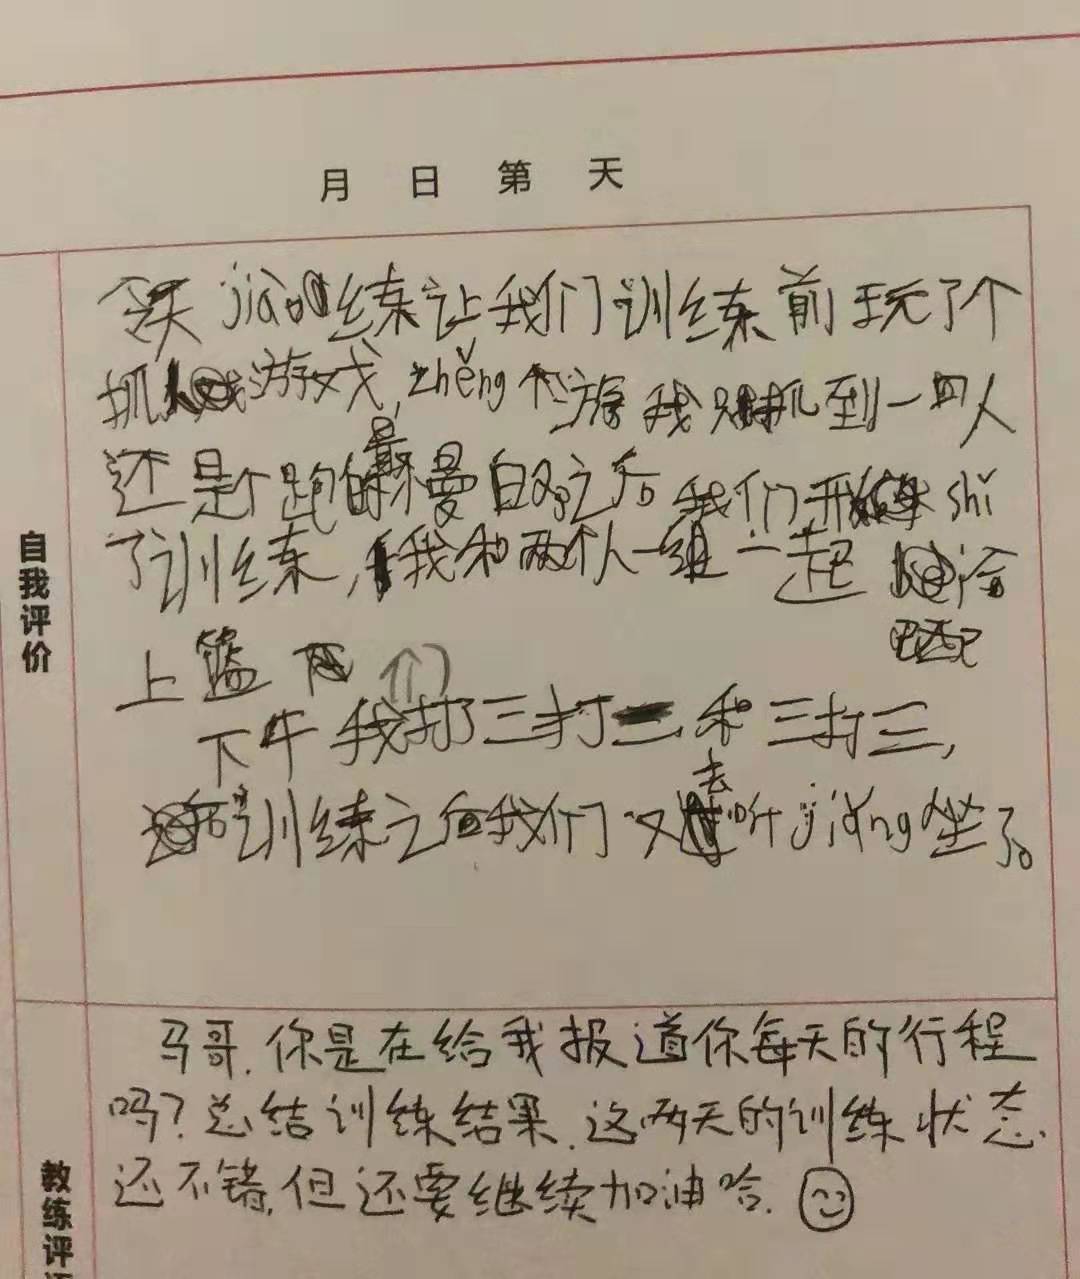 月 日 第 天
自我评价
今天jiao练让我们训练前玩了个
抓游戏,zhěng个游戏我只抓到一四人
还是个跑的最慢的。之后我们开shi
了训练,我和两个人一组一起
配合
上篮
下午我们打了三打二和三打三,
训练之后我们又去听jiǎng坐了。
教练评
马哥.你是在给我报道你每天的行程
吗?总结训练结果.这两天的训练状态
还不错,但还要继续加油哈.